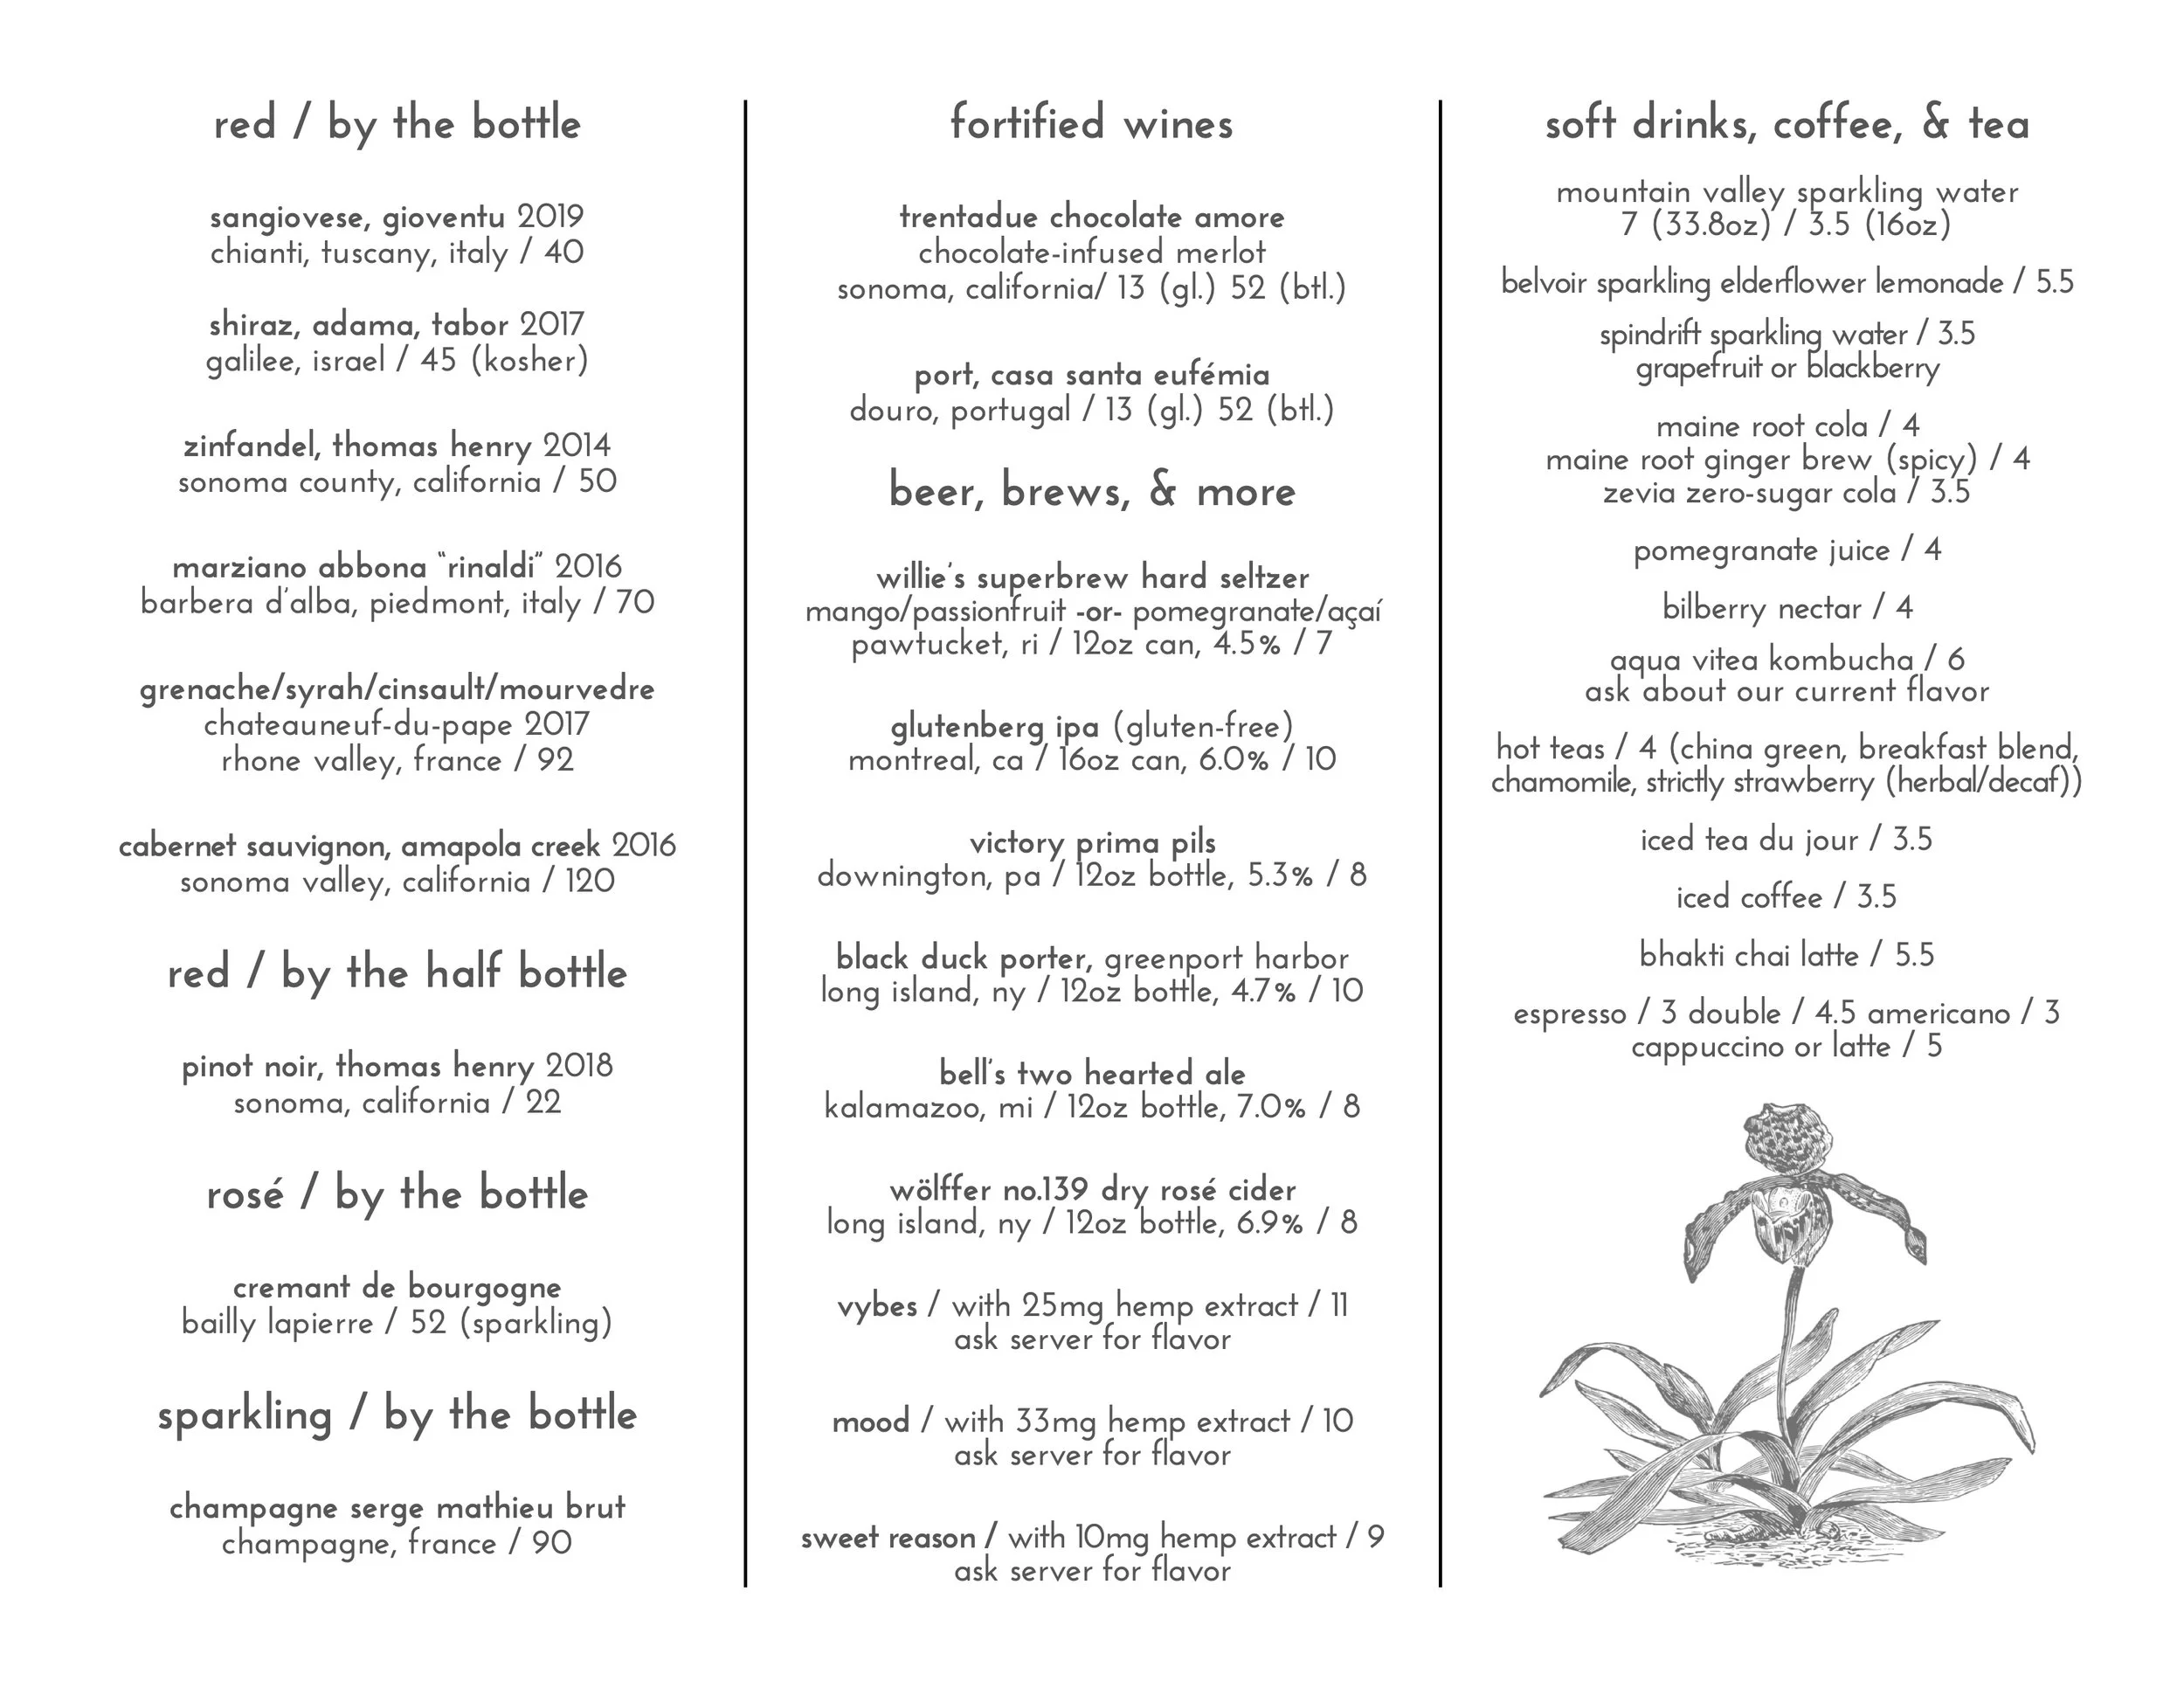 red / by the bottle
sangiovese, gioventu 2019
chianti, tuscany, italy / 40
shiraz, adama, tabor 2017
galilee, israel / 45 (kosher)
zinfandel, thomas henry 2014
sonoma county, california / 50
marziano abbona “rinaldi” 2016
barbera d'alba, piedmont, italy / 70
grenache/syrah/cinsault/mourvedre
chateauneuf-du-pape 2017
rhone valley, france / 92
cabernet sauvignon, amapola creek 2016
sonoma valley, california / 120
red / by the half bottle
pinot noir, thomas henry 2018
sonoma, california / 22
rosé / by the bottle
cremant de bourgogne
bailly lapierre / 52 (sparkling)
sparkling / by the bottle
champagne serge mathieu brut
champagne, france / 90
fortified wines
trentadue chocolate amore
chocolate-infused merlot
sonoma, california/ 13 (gl.) 52 (btl.)
port, casa santa eufémia
douro, portugal / 13 (gl.) 52 (btl.)
beer, brews, & more
willie's superbrew hard seltzer
mango/passionfruit -or- pomegranate/açaí
pawtucket, ri / 12oz can, 4.5% / 7
glutenberg ipa (gluten-free)
montreal, ca / 16oz can, 6.0% / 10
victory prima pils
downington, pa / 12oz bottle, 5.3% / 8
black duck porter, greenport harbor
long island, ny / 12oz bottle, 4.7% / 10
bell's two hearted ale
kalamazoo, mi / 12oz bottle, 7.0% / 8
wölffer no.139 dry rosé cider
long island, ny / 12oz bottle, 6.9% / 8
vybes / with 25mg hemp extract / 11
ask server for flavor
mood / with 33mg hemp extract / 10
ask server for flavor
sweet reason / with 10mg hemp extract / 9
ask server for flavor
soft drinks, coffee, & tea
mountain valley sparkling water
7 (33.8oz) / 3.5 (16oz)
belvoir sparkling elderflower lemonade / 5.5
spindrift sparkling water / 3.5
grapefruit or blackberry
maine root cola / 4
maine root ginger brew (spicy) / 4
zevia zero-sugar cola / 3.5
pomegranate juice / 4
bilberry nectar / 4
aqua vitea kombucha / 6
ask about our current flavor
hot teas / 4 (china green, breakfast blend,
chamomile, strictly strawberry (herbal/decaf))
iced tea du jour / 3.5
iced coffee / 3.5
bhakti chai latte / 5.5
espresso / 3 double / 4.5 americano / 3
cappuccino or latte / 5